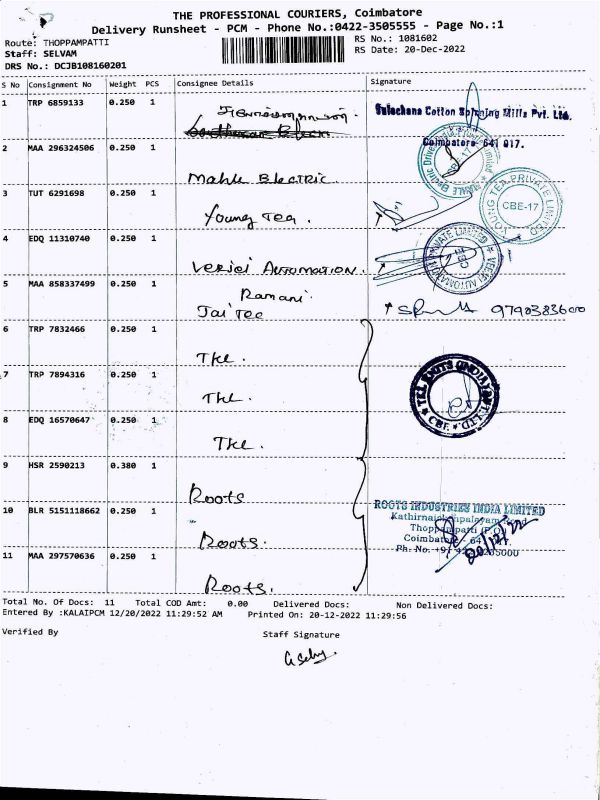 THE PROFESSIONAL COURIERS, Coimbatore
Delivery Runsheet - PCM - Phone No.:0422-3505555 - Page No.:1
Route: THOPPAMPATTI
RS No.: 1081602
Staff: SELVAM
RS Date: 20-Dec-2022
DRS No.: DCJB108160201
S No Consignment No Weight PCS Consignee Details Signature
1 TRP 6859133 0.250 1
Sulochana Cotton Spinning Mills Pvt. Ltd.
Coimbatore - 641 017.
2 MAA 296324506 0.250 1
Mahle Electric
3 TUT 6291698 0.250 1
Young Tea.
YOUNG TEA PRIVATE LIMITED
CBE-17
4 EDQ 11310740 0.250 1
Verjei Automation.
5 MAA 858337499 0.250 1
Ramani.
Jai Tec
6 TRP 7832466 0.250 1
TKL.
7 TRP 7894316 0.250 1
TKL.
8 EDQ 16570647 0.250 1
TKL.
9 HSR 2590213 0.380 1
Roots
10 BLR 5151118662 0.250 1
Roots.
ROOTS INDUSTRIES INDIA LIMITED
11 MAA 297570636 0.250 1
Roots.
Total No. Of Docs: 11 Total COD Amt: 0.00 Delivered Docs: Non Delivered Docs:
Entered By :KALAIPCM 12/20/2022 11:29:52 AM Printed On: 20-12-2022 11:29:56
Verified By Staff Signature